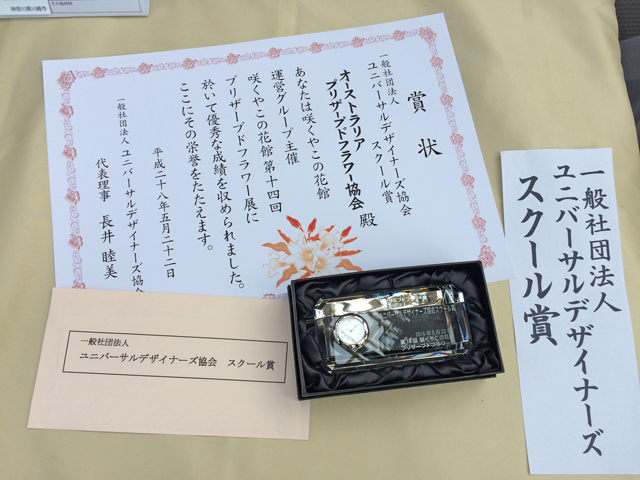 賞状
一般社団法人
ユニバーサルデザイナーズ協会
スクール賞
オーストラリア
プリザーブドフラワー協会 殿
あなたは咲くやこの花館
運営グループ主催
咲くやこの花館第十四回
プリザーブドフラワー展に
於いて優秀な成績を収められました。
ここにその栄誉をたたえます。
平成二十八年五月二十二日
一般社団法人 ユニバーサルデザイナーズ協会
代表理事 長井睦美
一般社団法人
ユニバーサルデザイナーズ協会 スクール賞
一般社団法人
ユニバーサルデザイナーズ
スクール賞